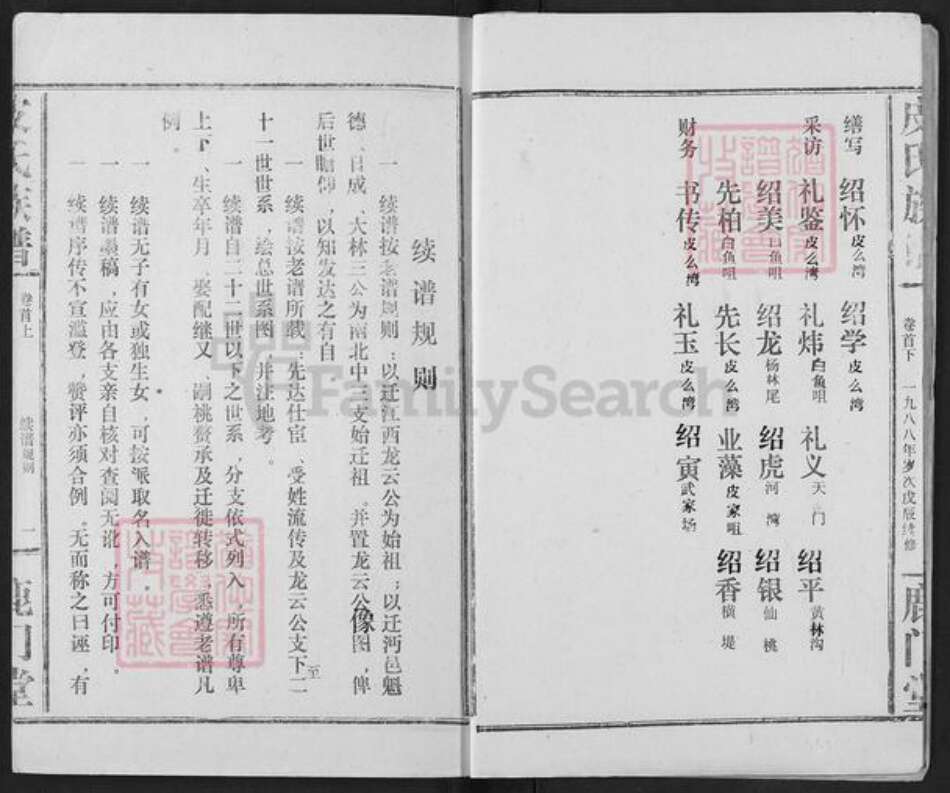 皮氏族谱
卷首下
一九八八年岁次戊辰续修
鹿门堂
缮写 绍怀皮么湾 绍学皮么湾
采访 礼鉴皮么湾 礼炜白鱼咀 礼义天门 绍平黄林沟
绍美白鱼咀 绍龙杨林尾 绍虎河湾 绍银仙桃
先柏白鱼咀 先长皮么湾 业藻皮家咀 绍香横堤
财务 书传皮么湾 礼玉皮么湾 绍寅武家场
续谱规则
一 续谱按老谱规则：以迁江西龙云公为始祖；以迁沔邑魁
德、日成、大林三公为南北中三支始迁祖。并置龙云公像图，俾
后世瞻仰，以知发达之有自
一 续谱按老谱所载：先达仕宦、受姓流传及龙云公支下二至
十一世世系，绘总世系图，并注地考。
一 续谱自二十二世以下之世系，分支依式列入，所有尊卑
上下、生卒年月、娶配继又、嗣祧赘承及迁徙转移，悉遵老谱凡
例。
一 续谱无子有女或独生女，可按派取名入谱。
一 续谱墨稿，应由各支亲自核对查阅无讹，方可付印。
一 续谱序传不宣滥登，赞评亦须合例。无而称之曰诬，有
皮氏族谱
卷首上
续谱规则
二
鹿门堂
FamilySearch